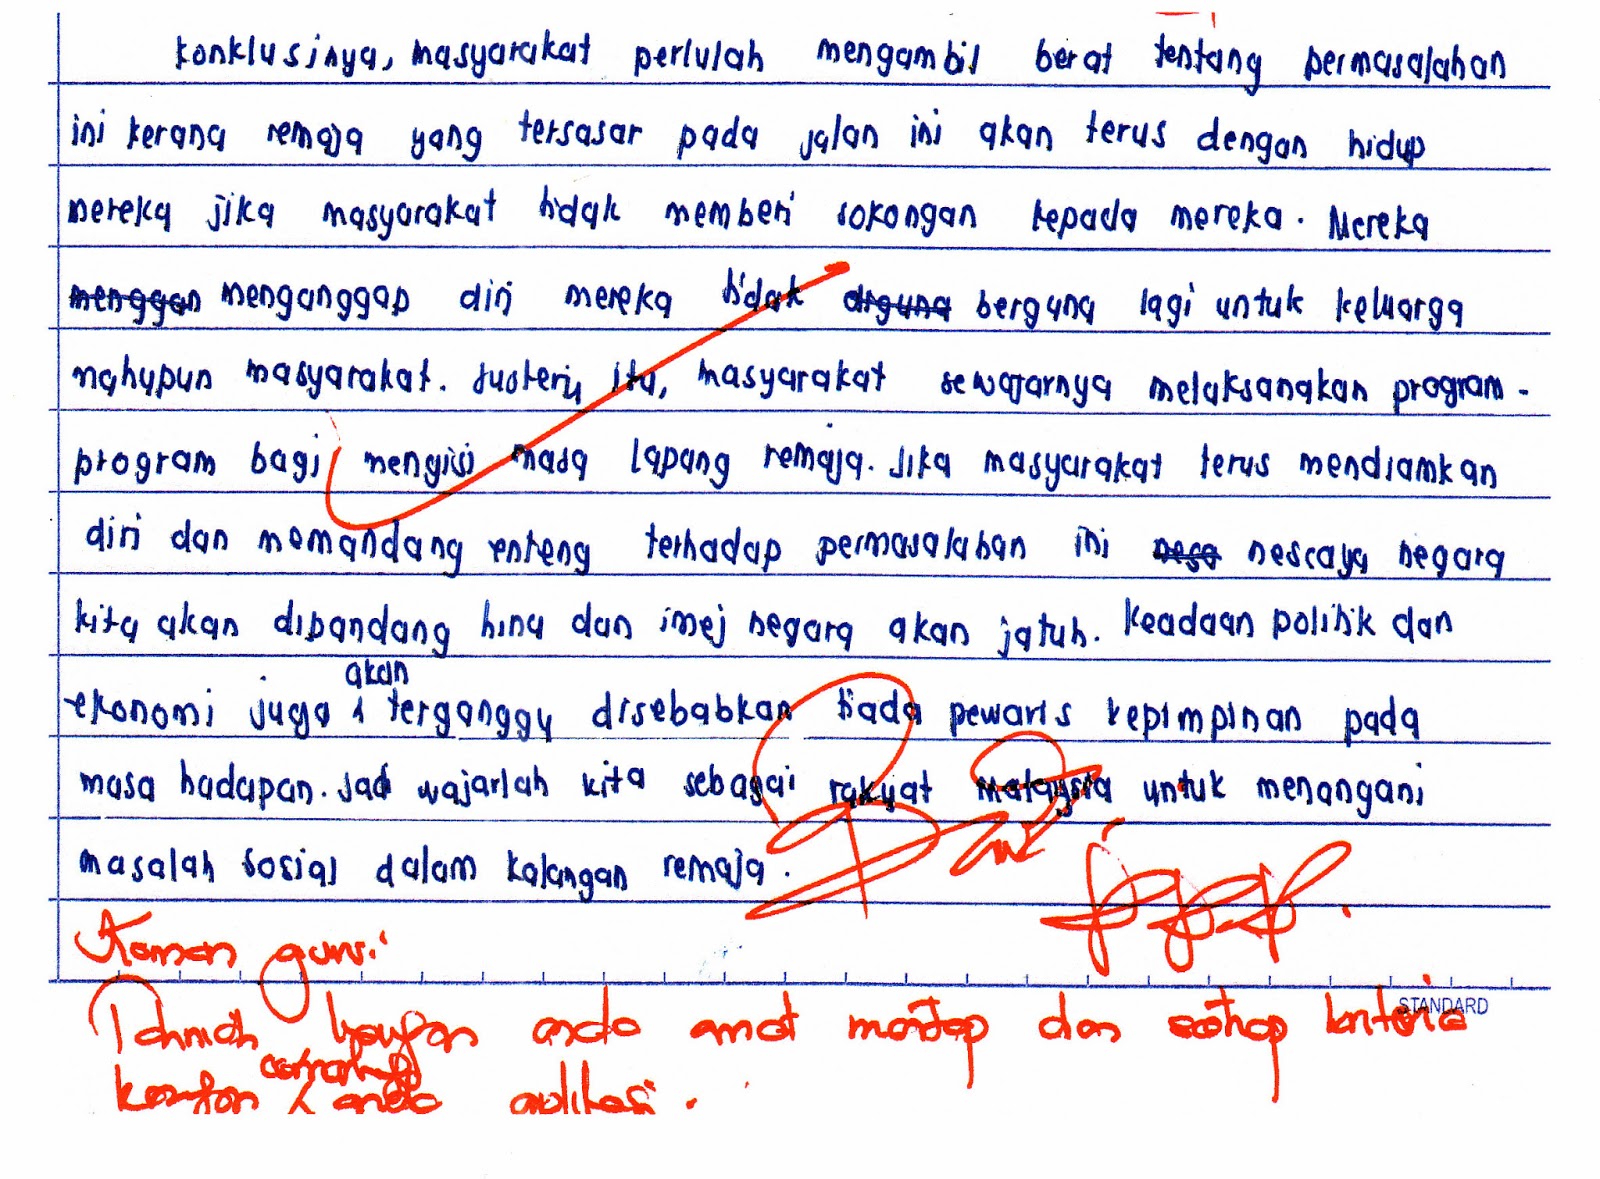 Konklusinya, masyarakat perlulah mengambil berat tentang permasalahan
ini kerana remaja yang tersasar pada jalan ini akan terus dengan hidup
mereka jika masyarakat tidak memberi sokongan kepada mereka. Mereka
menggan menganggap diri mereka tidak diguna berguna lagi untuk keluarga
mahupun masyarakat. Justeru itu, masyarakat sewajarnya melaksanakan program-
program bagi mengisi masa lapang remaja. Jika masyarakat terus mendiamkan
diri dan memandang enteng terhadap permasalahan ini nesc nescaya negara
kita akan dipandang hina dan imej negara akan jatuh. Keadaan politik dan
akan
ekonomi juga terganggu disebabkan tiada pewaris kepimpinan pada
masa hadapan. Jadi wajarlah kita sebagai rakyat malaysia untuk menangani
masalah sosial dalam kalangan remaja.
Komen guru:
STANDARD
Tahniah karangan anda amat mantap dan setiap kriteria
karangan anda aplikasi.